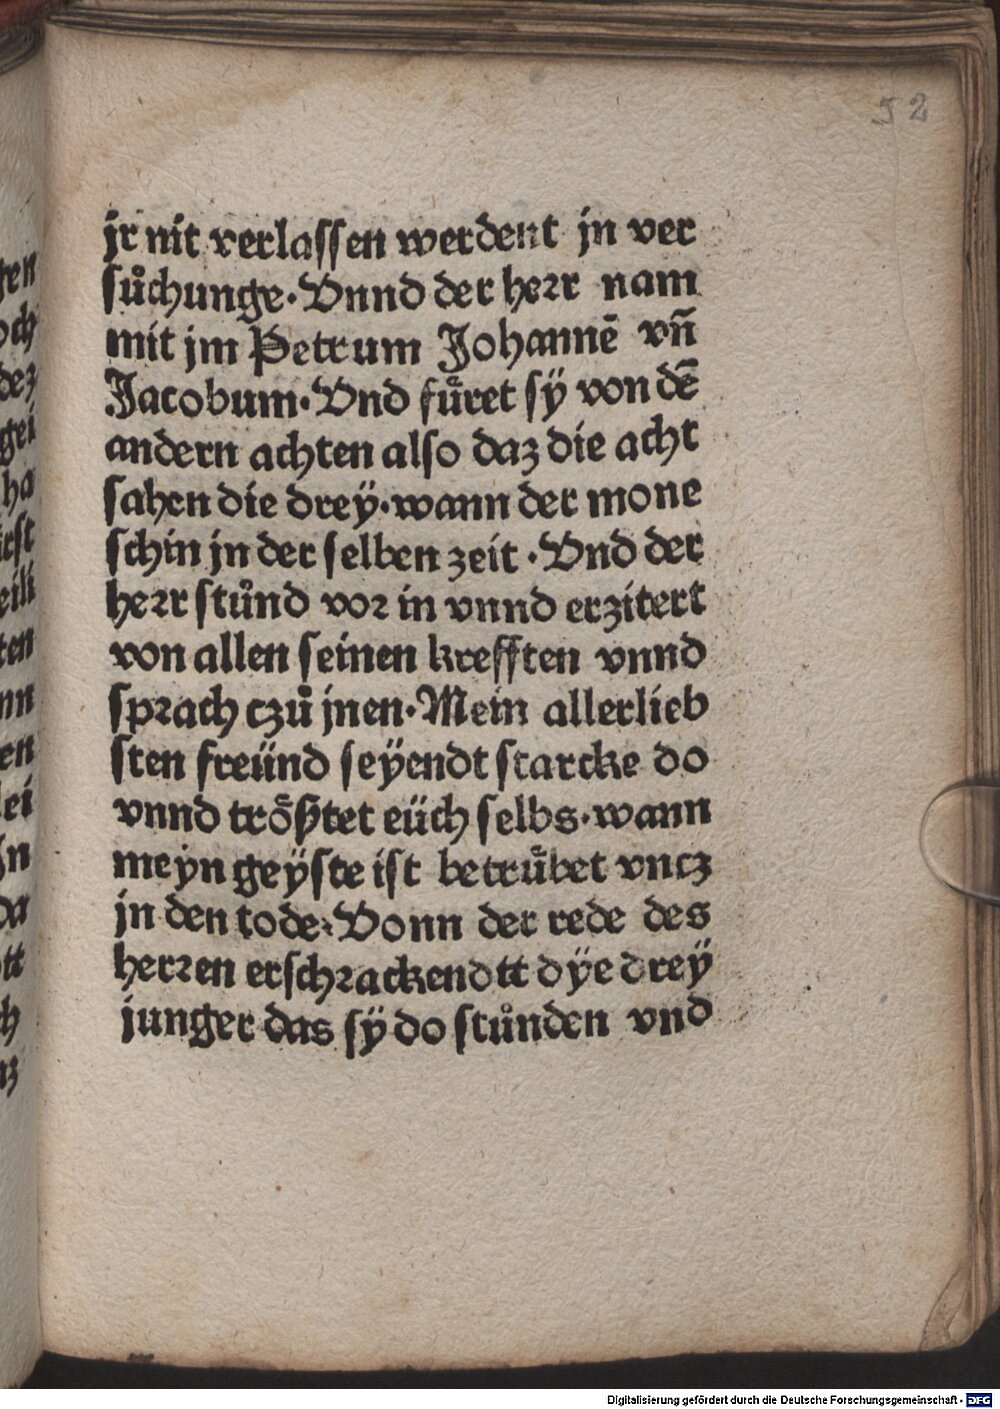 52
jr nit verlassen werdent jn ver
sůchunge. Vnnd der herr nam
mit jm Petrum Johannē vñ
Jacobum. Vnd fůret sÿ von dē
andern achten also daz die acht
sahen die dreÿ. wann der mone
schin jn der selben zeit. Vnd der
herr stůnd vor in vnnd erzitert
von allen seinen krefften vnnd
sprach czů jnen. Mein allerlieb
sten freünd seÿendt starcke do
vnnd trőßtet eüch selbs. wann
meyn geÿste ist betrůbet vncz
jn den tode: Vonn der rede des
herren erschrackendtt dÿe dreÿ
junger das sÿ do stůnden vnd
Digitalisierung gefördert durch die Deutsche Forschungsgemeinschaft - DFG